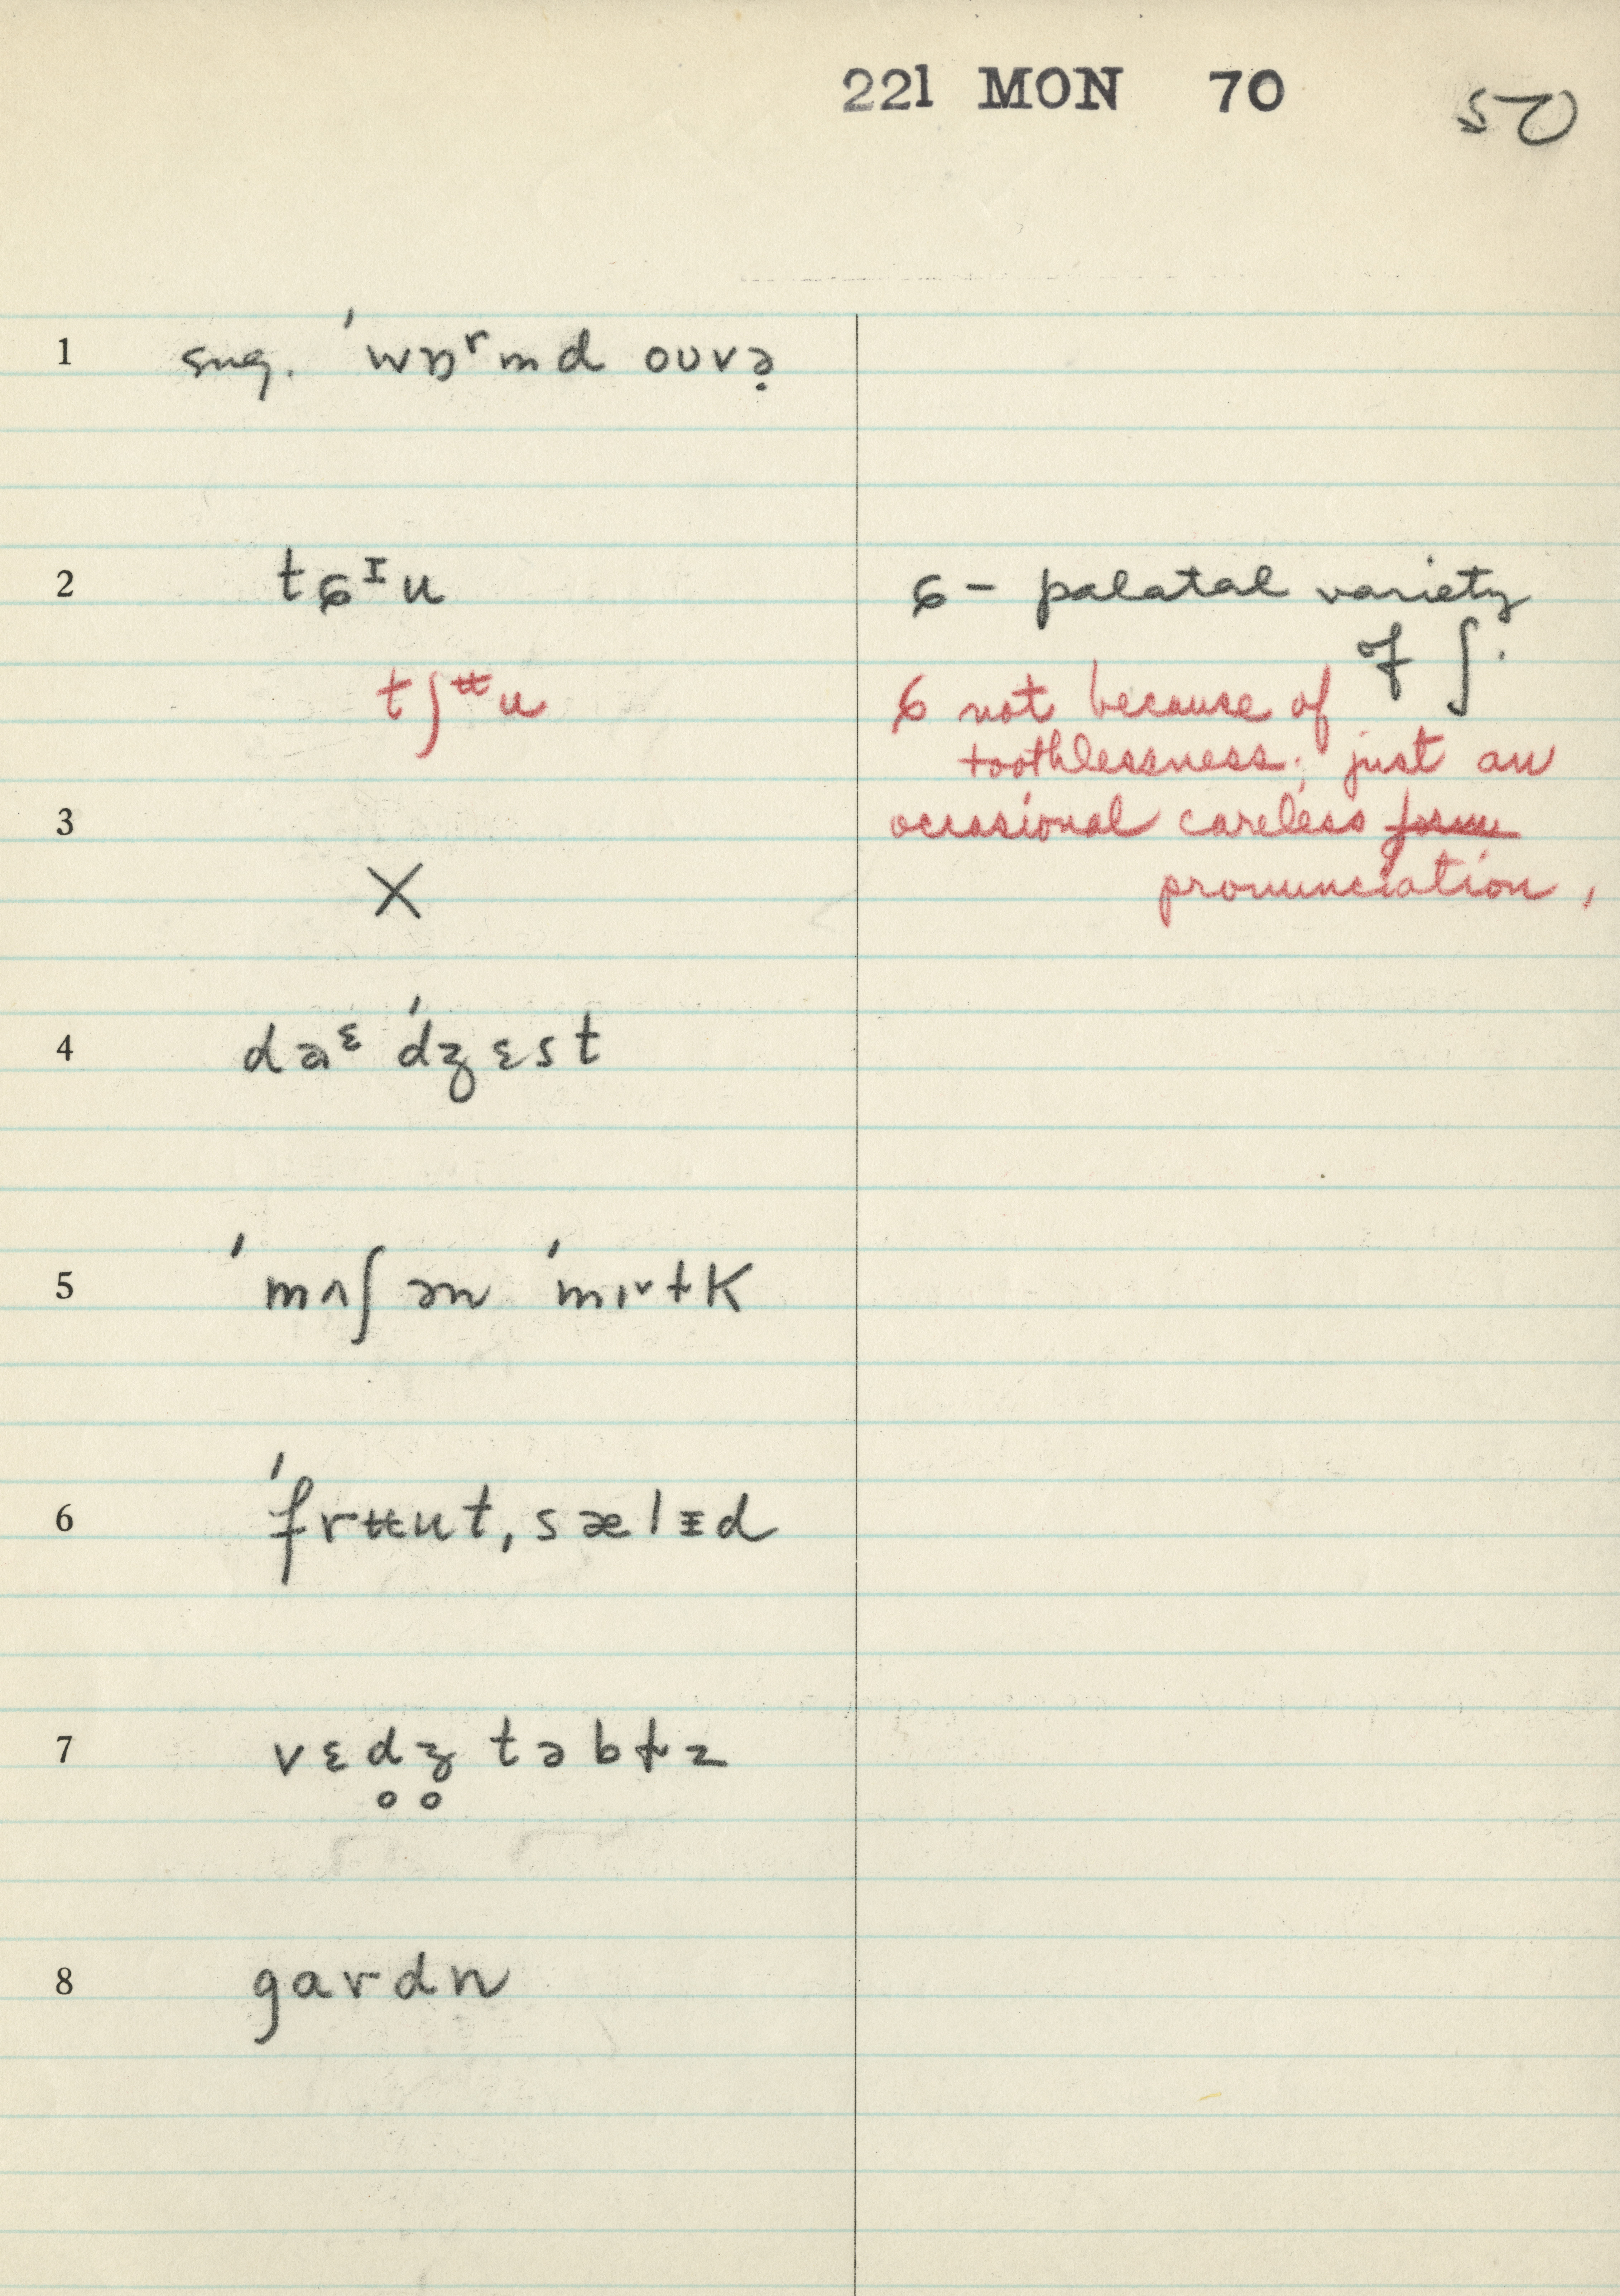 221 MON 70 50
1 sug. ˈwɒʳmd oʊvə̣
2 tɕᶦu ɕ – palatal variety
of ʃ.
tʃᶶu ɕ not because of
toothlessness; just an
3 occasional careless form
pronunciation,
X
4 daᵋ ˈdʒɛst
5 ˈmʌʃən ˈmɪˇɫK
6 ˈfrʉut, sælɪ̵d
7 vɛd̥ʒ̊ təbɫz
8 gardn